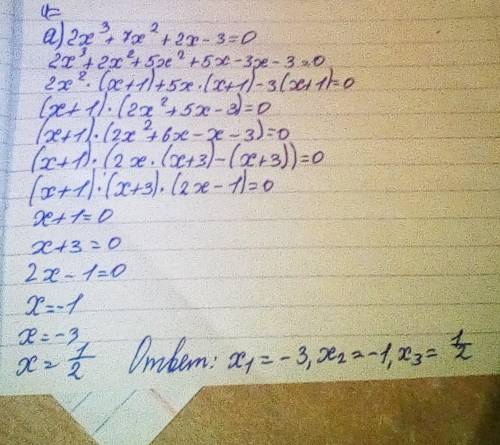 а) 2x³ + 7x² + 2x - 3 = 0
2x³ + 2x² + 5x² + 5x - 3x - 3 = 0
2x² · (x+1) + 5x · (x+1) - 3(x+1) = 0
(x+1) · (2x² + 5x - 3) = 0
(x+1) · (2x² + 6x - x - 3) = 0
(x+1) · (2x · (x+3) - (x+3)) = 0
(x+1) · (x+3) · (2x - 1) = 0
x+1 = 0
x+3 = 0
2x - 1 = 0
x = -1
x = -3
x = 1/2 Ответ: x₁ = -3, x₂ = -1, x₃ = 1/2